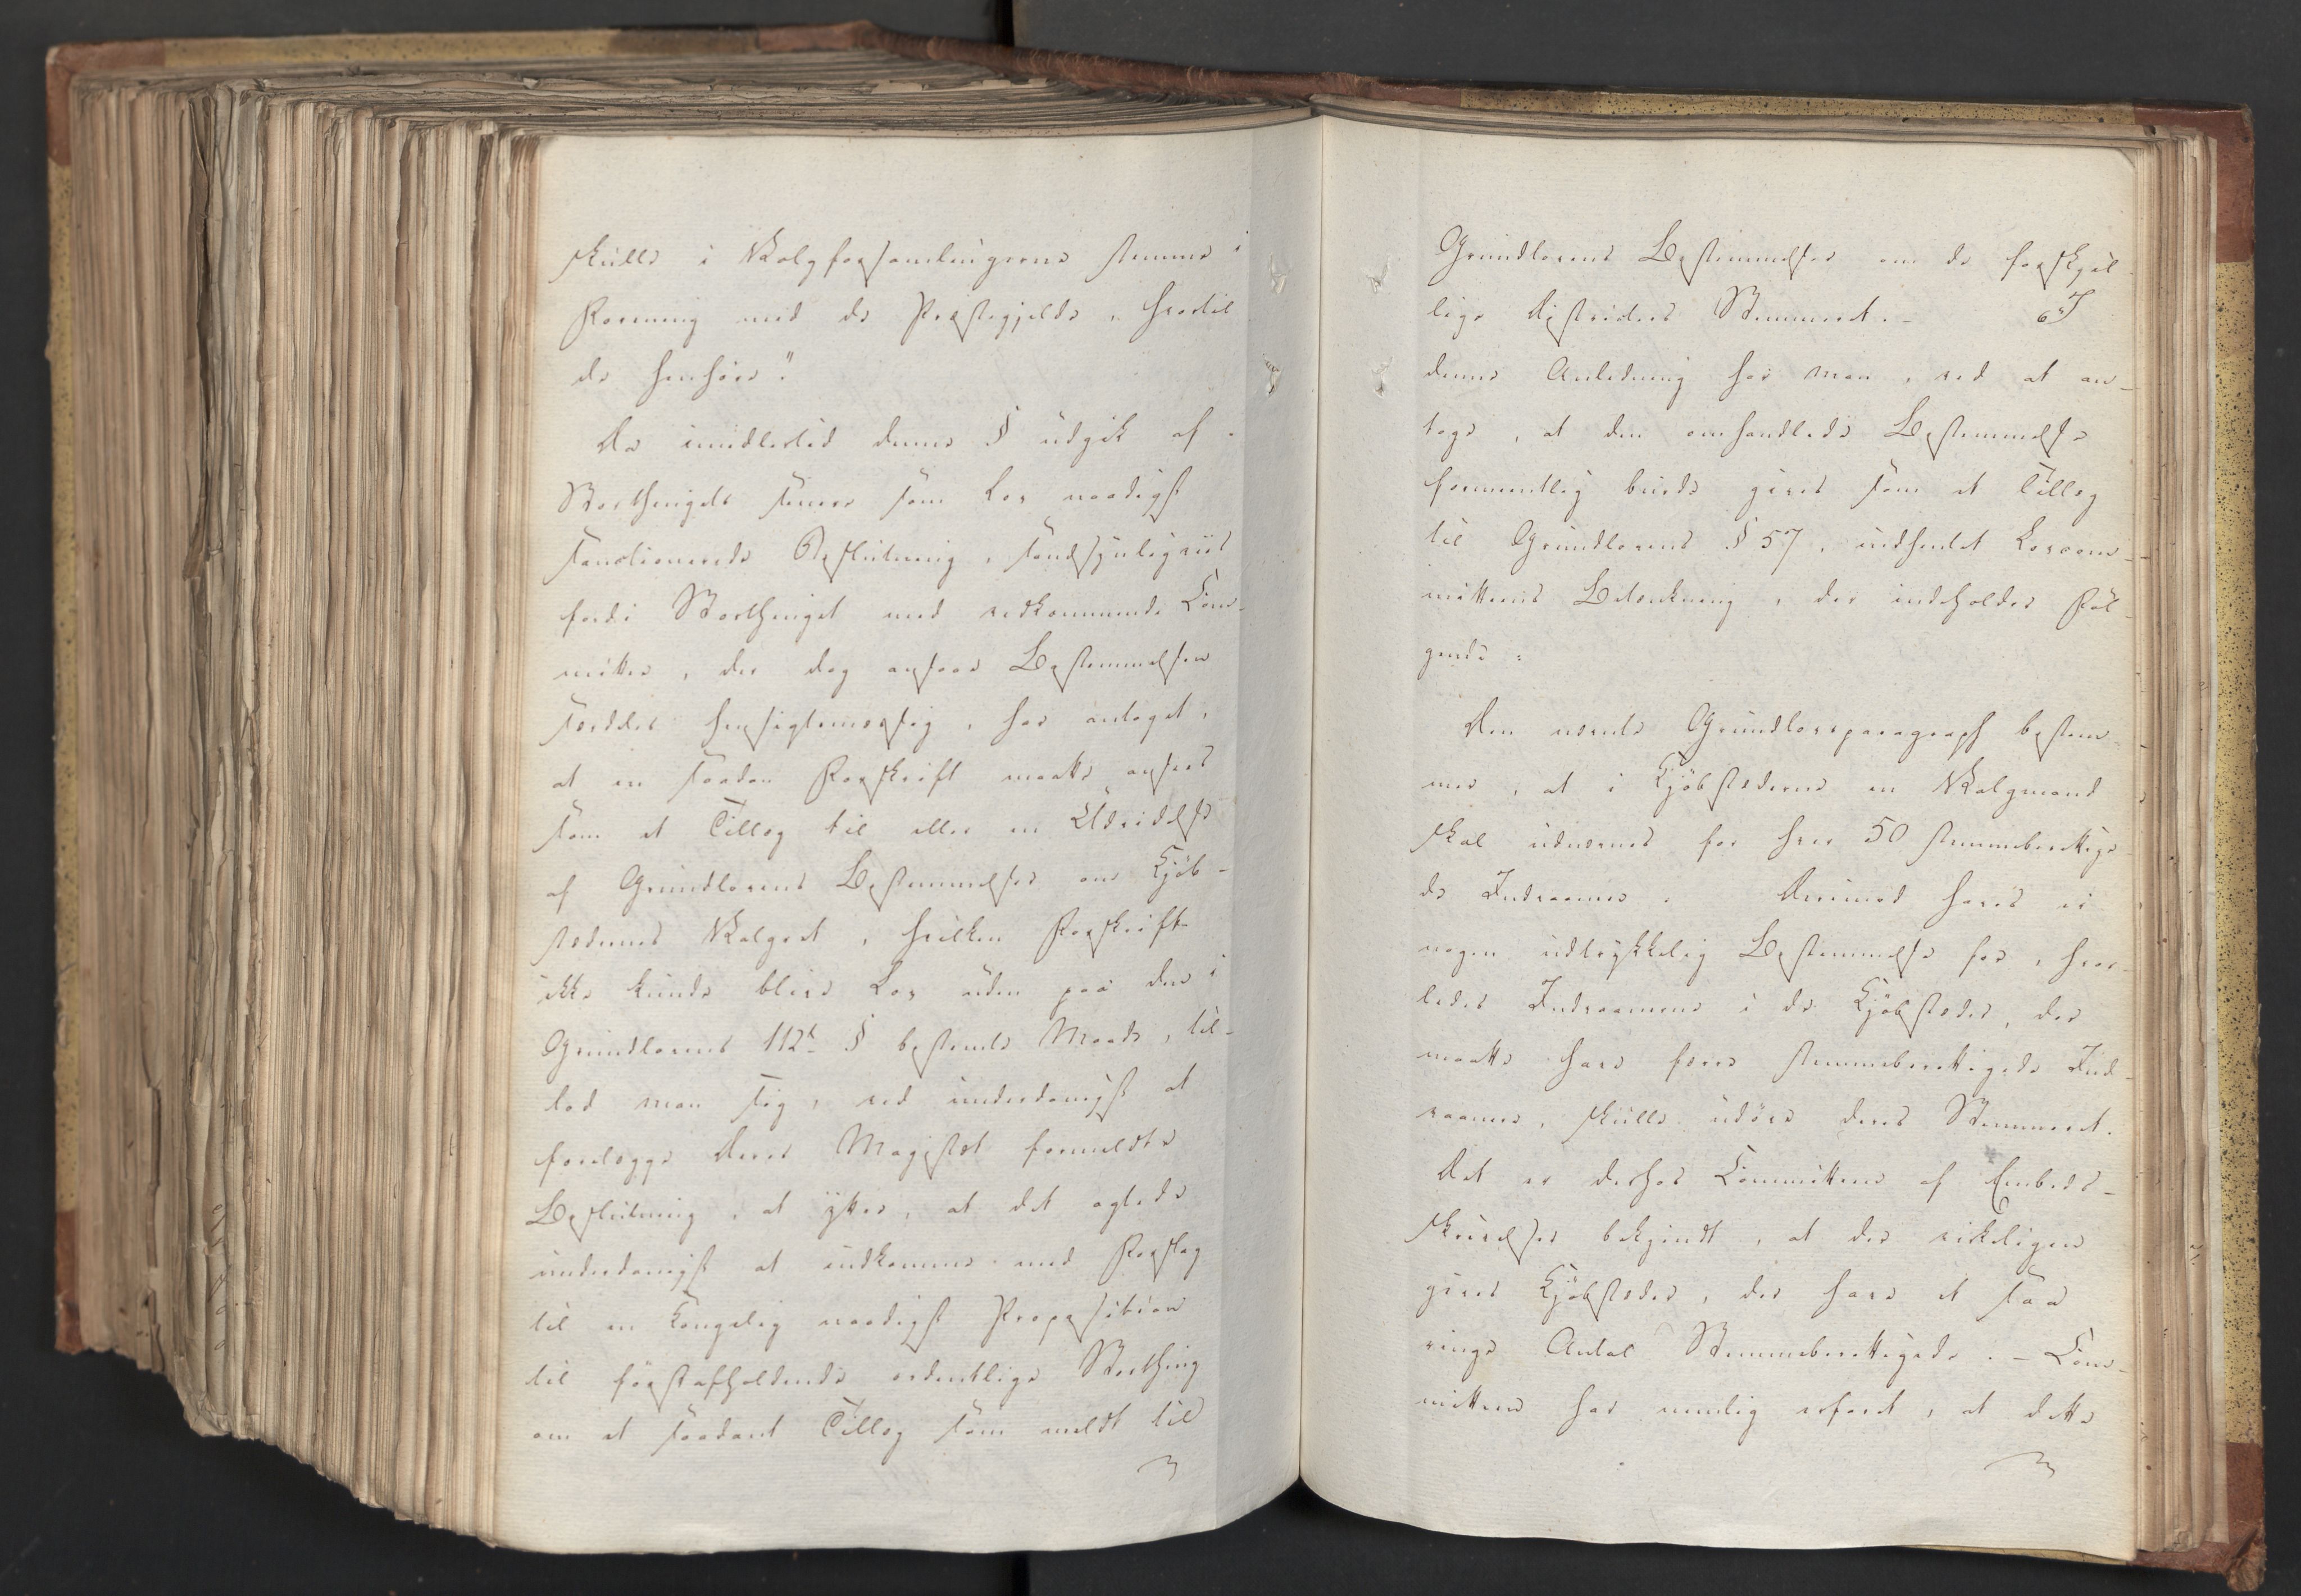 skulle i Valgforsamlingerne stemme i
Forening med de Præstegjelde, hvortil
de henhøre."
Da imidlertid denne § udgik af
Storthingets senere som Lov naadigst
sanctionerede Beslutning, sandsynligviis
fordi Storthinget med vedkommende Com-
mittee, der dog ansaae Bestemmelsen
særdeles hensigtsmæssig, har antaget,
at en saadan Forskrift maatte ansees
som et Tillæg til eller en Udvidelse
af Grundlovens Bestemmelser om Kjøb-
stædernes Valgret, hvilken Forskrift
ikke kunde blive Lov uden paa den i
Grundlovens 112de § bestemte Maade, til-
lod man sig, ved underdanigst at
forelægge Deres Majestæt formeldte
Beslutning, at yttre, at det agtede
underdanigst at indkomme med Forslag
til en Kongelig naadigst Proposition
til førstafholdende ordentlige Storthing
om et saadant Tillæg som meldt til
Grundlovens Bestemmelser om de forskjel-
lige Districters Stemmeret. - I
denne Anledning har man, ved at an-
tage, at den omhandlede Bestemmelse
formentlig burde gives som et Tillæg
til Grundlovens § 57, indhentet Lovcom-
mitteens Betænkning, der indeholder Føl-
gende:
Den nævnte Grundlovsparagraph bestem-
mer, at i Kjøbstæderne en Valgmand
skal udnævnes for hver 50 stemmeberettige-
de Indvaanere. Derimod haves ei
nogen udtrykkelig Bestemmelse for, hvor-
ledes Indvaanerne i de Kjøbstæder, der
maatte have færre stemmeberettigede Ind-
vaanere, skulle udøve deres Stemmeret.
Det er derhos Committeen af Embeds-
skrivelser bekjendt, at der virkeligen
gives Kjøbstæder, der have et saa
ringe Antal Stemmeberettigede. - Com-
mitteen har nemlig erfaret, at dette